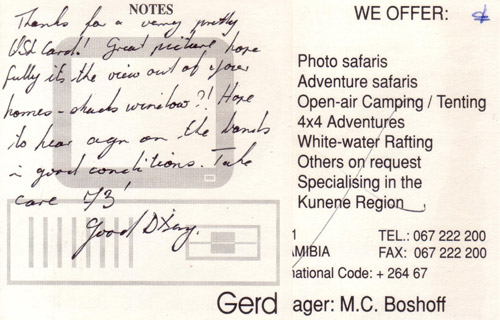 NOTES
Thanks for a very pretty
QSL Card! Great picture hope
fully it's the view out of your
homes-shacks window?! Hope
to hear agn on the bands
in good conditions. Take
care 73!
Good DXing.
Gerd
WE OFFER:
Photo safaris
Adventure safaris
Open-air Camping / Tenting
4x4 Adventures
White-water Rafting
Others on request
Specialising in the
Kunene Region
1 TEL.: 067 222 200
MIBIA FAX: 067 222 200
national Code: + 264 67
ager: M.C. Boshoff